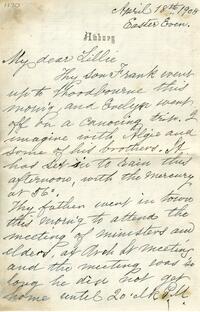 1130
April 18th 1908
Easter Even.
My dear Lillie
Thy son Frank went
up to Woodbourne this
morn'g, and Evelyn went
off on a canoeing trip. I
imagine with Algie and
some of his brothers. It
has set in to rain this
afternoon, with the mercury
at 56°.
Thy father went in town
this morn'g to attend the
meeting of ministers and
elders, at Arch St Meeting
and the meeting was so
long he did not get
home until 2 o'clk P.M.